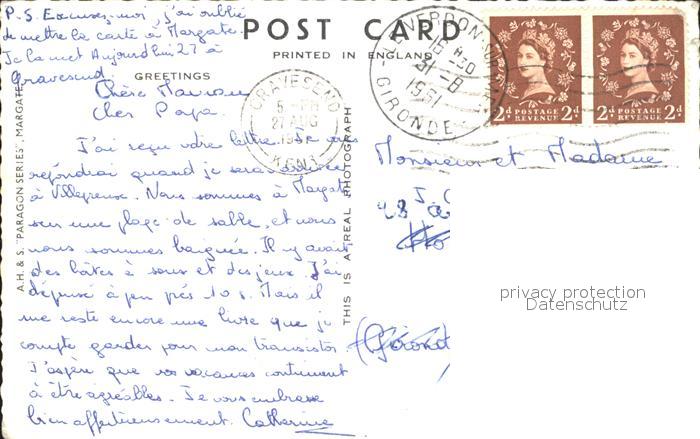 P.S. Excusez-moi, j'ai oublié
de mettre la carte à Margate.
Je la met Aujourd'hui 27 à
Gravesend.
POST CARD
PRINTED IN ENGLAND
GREETINGS
Chère Maman
Cher Papa.
J'ai reçu votre lettre. Je vous
refondrai quand je serai arrivée
à Villepreux. Nous sommes à Margate
sur une plage de sable, et nous
nous sommes baignée. Il y avait
des bâtes à sous et des jeux. J'ai
dépensé à peu près 10 s. Mais il
me reste encore une livre que je
compte garder pour mon transistor.
J'espère que vos vacances continuent
à être agréables. Je vous embrasse
bien affectueusement. Catherine
A.H. & S. "PARAGON SERIES", MARGATE
THIS IS A REAL PHOTOGRAPH
GRAVESEND
5-PM
27 AUG
KENT
GIRONDE
2d POSTAGE REVENUE 2d
2d POSTAGE REVENUE 2d
Monsieur et Madame
(Girond
privacy protection
Datenschutz